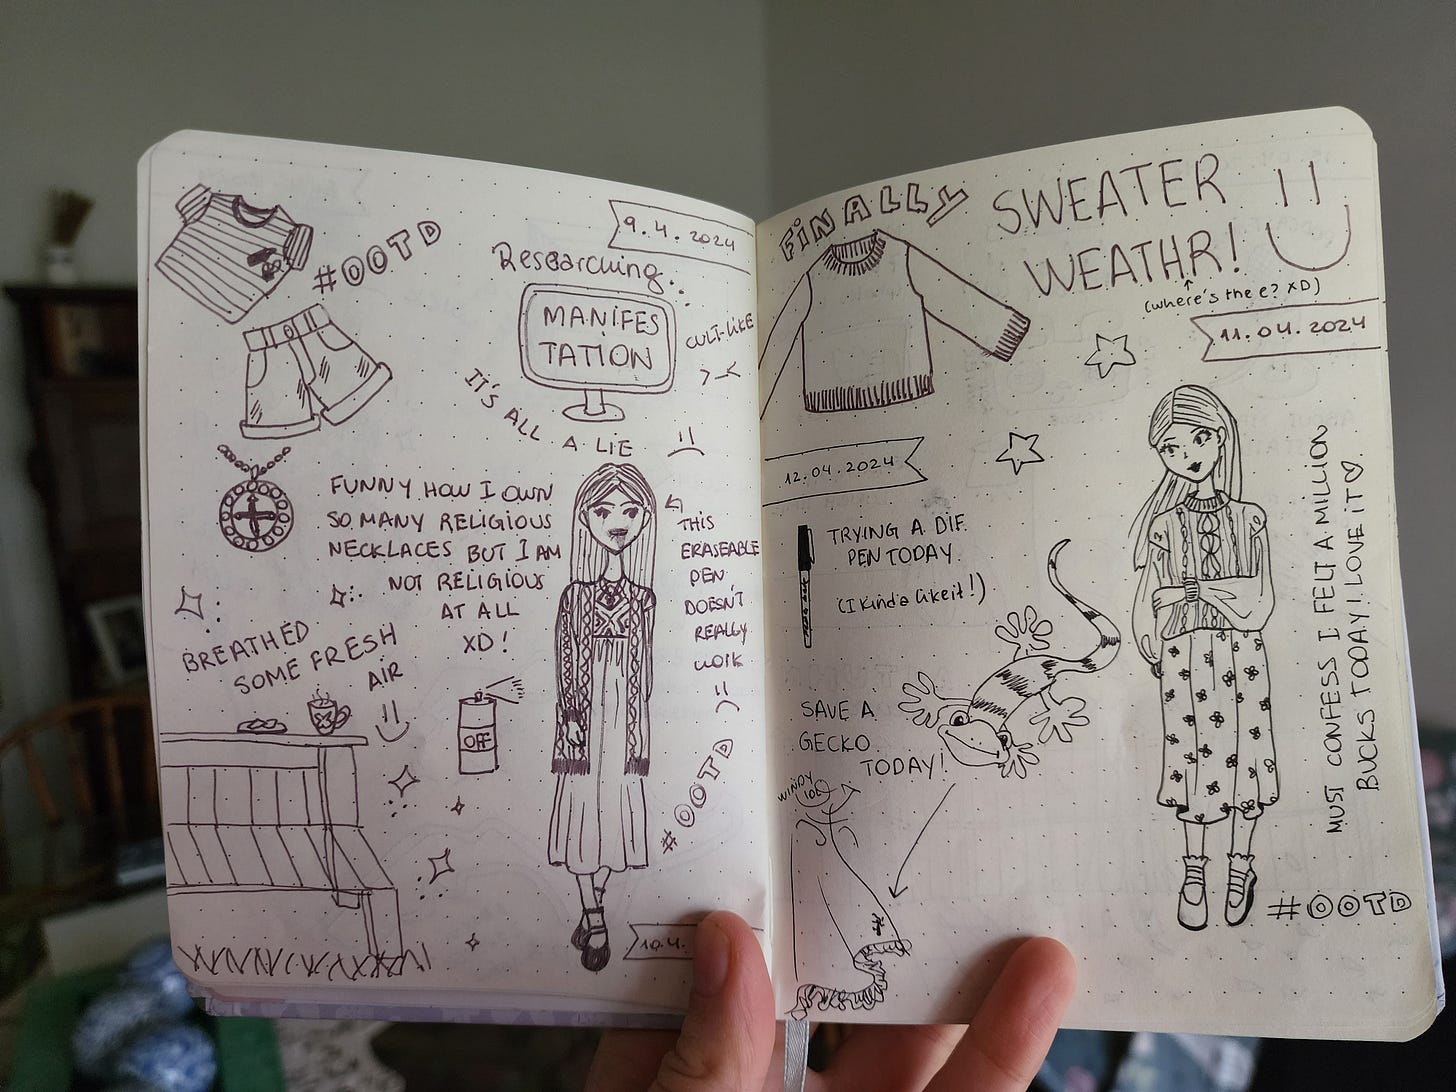 #OOTD
9.4.2024
Researching...
MANIFES
TATION
CULT-LIKE
IT'S ALL A LIE
FUNNY HOW I OWN
SO MANY RELIGIOUS
NECKLACES BUT I AM
NOT RELIGIOUS
AT ALL
XD!
THIS
ERASEABLE
PEN
DOESN'T
REALLY
WORK
BREATHED
SOME FRESH
AIR
OFF
#OOTD
10.4.
FINALLY
SWEATER
WEATHR!
(where's the e? XD)
11.04.2024
12.04.2024
TRYING A DIF.
PEN TODAY
(I kinda like it!)
SAVE A
GECKO
TODAY!
WINDY
MUST CONFESS I FELT A MILLION
BUCKS TODAY! I LOVE IT♡
#OOTD